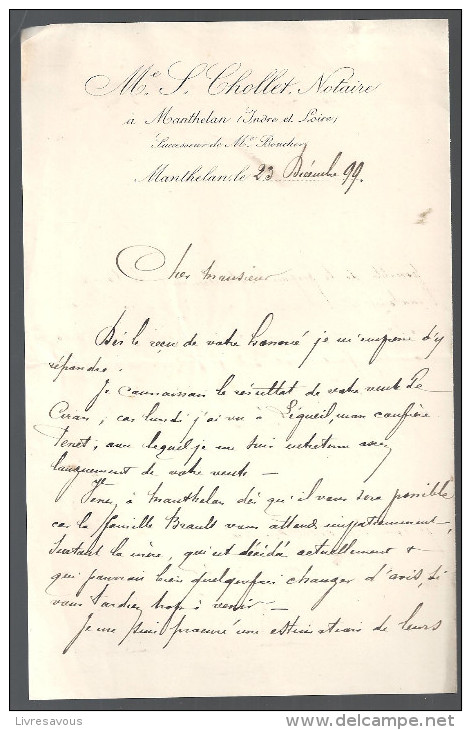 Me S. Chollet, Notaire
à Manthelan (Indre et Loire)
Successeur de Me Boucher
Manthelan, le 23 Décembre 99.
Cher Monsieur
Dès le reçu de votre honoré je m'empresse d'y
répondre.
Je connaissais le résultat de votre vente de
Ciran, car lundi j'ai vu à Ligueil, mon confrère
Tenet, avec lequel je me suis entretenu assez
longuement de votre vente —
Venez à Manthelan dès qu'il vous sera possible
car la famille Brault vous attend impatiemment,
surtout la mère, qui est décidée actuellement &
qui pourrait bien quelquefois changer d'avis, si
vous tardiez trop à venir —
Je me suis procuré une estimation de leurs
Livresavous
www.delcampe.net